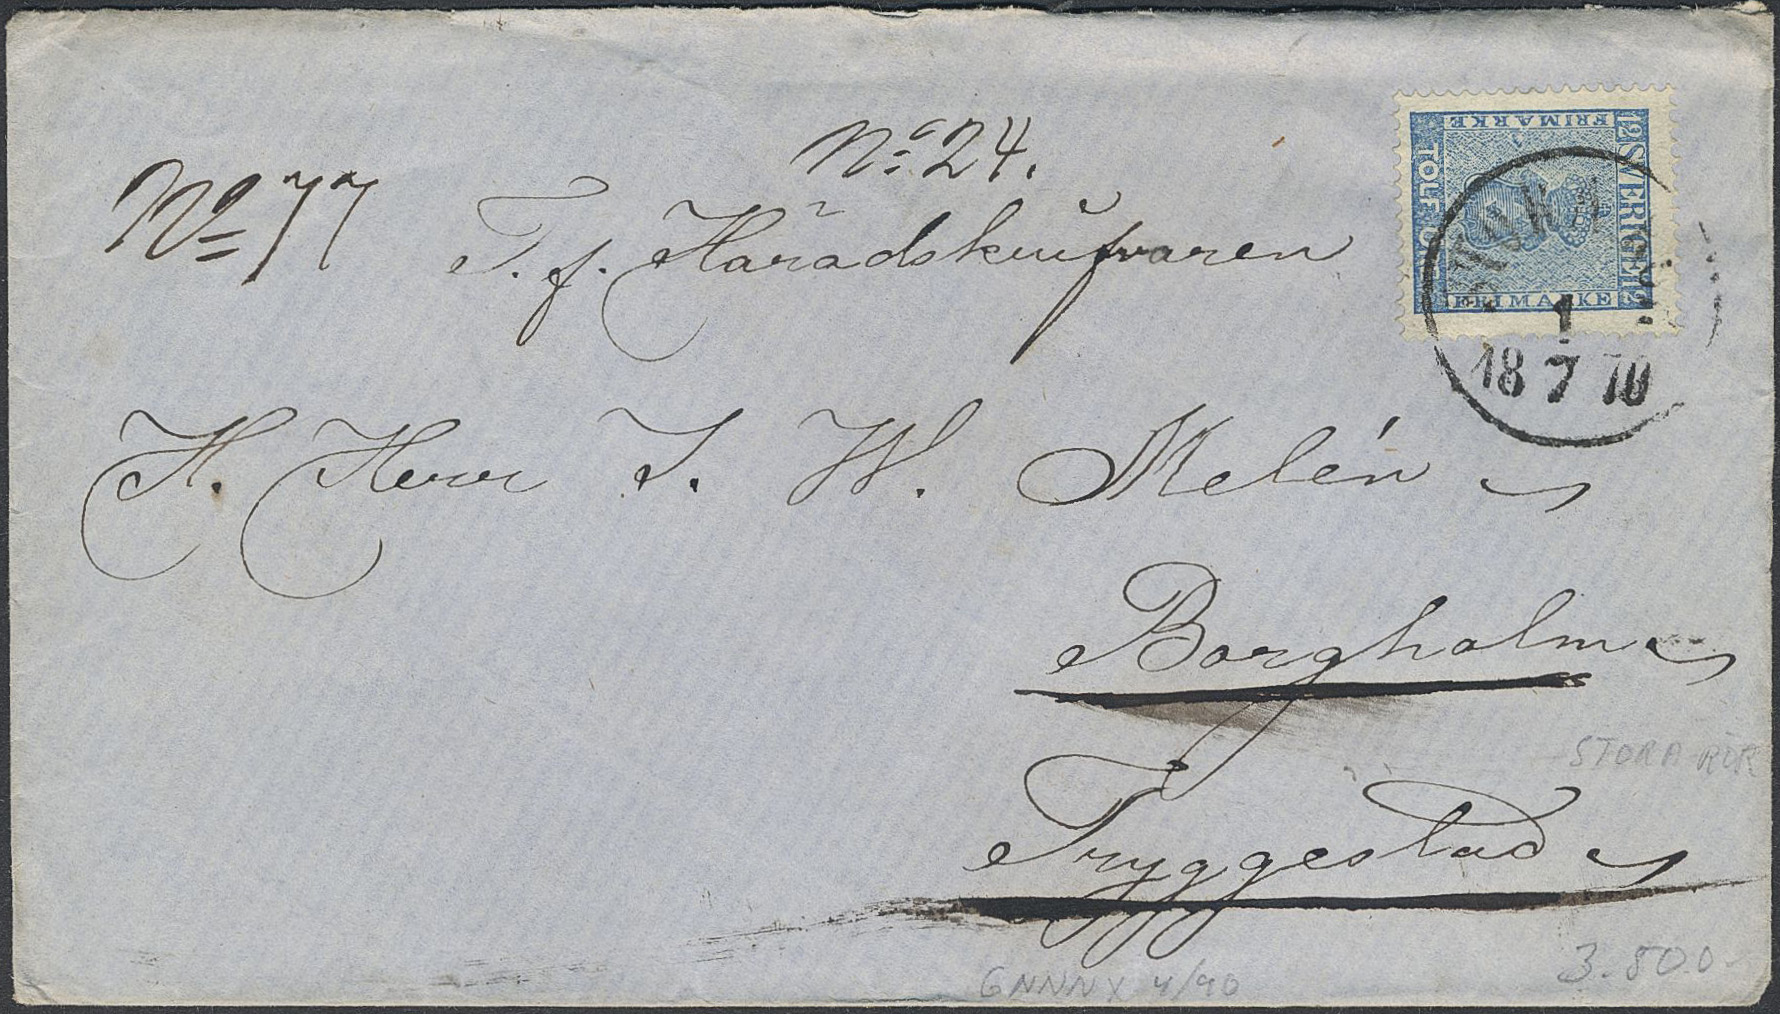 No 24.
No 77
T. f. Häradskrifvaren
H. Herr J. W. Melén
Borgholm
Tryggestad
SVERIGE
12
12
FRIMÄRKE
FRIMÄRKE
TOLF
1
18 7 70
STORA RÖR
3.800-
GNNNX 4/90